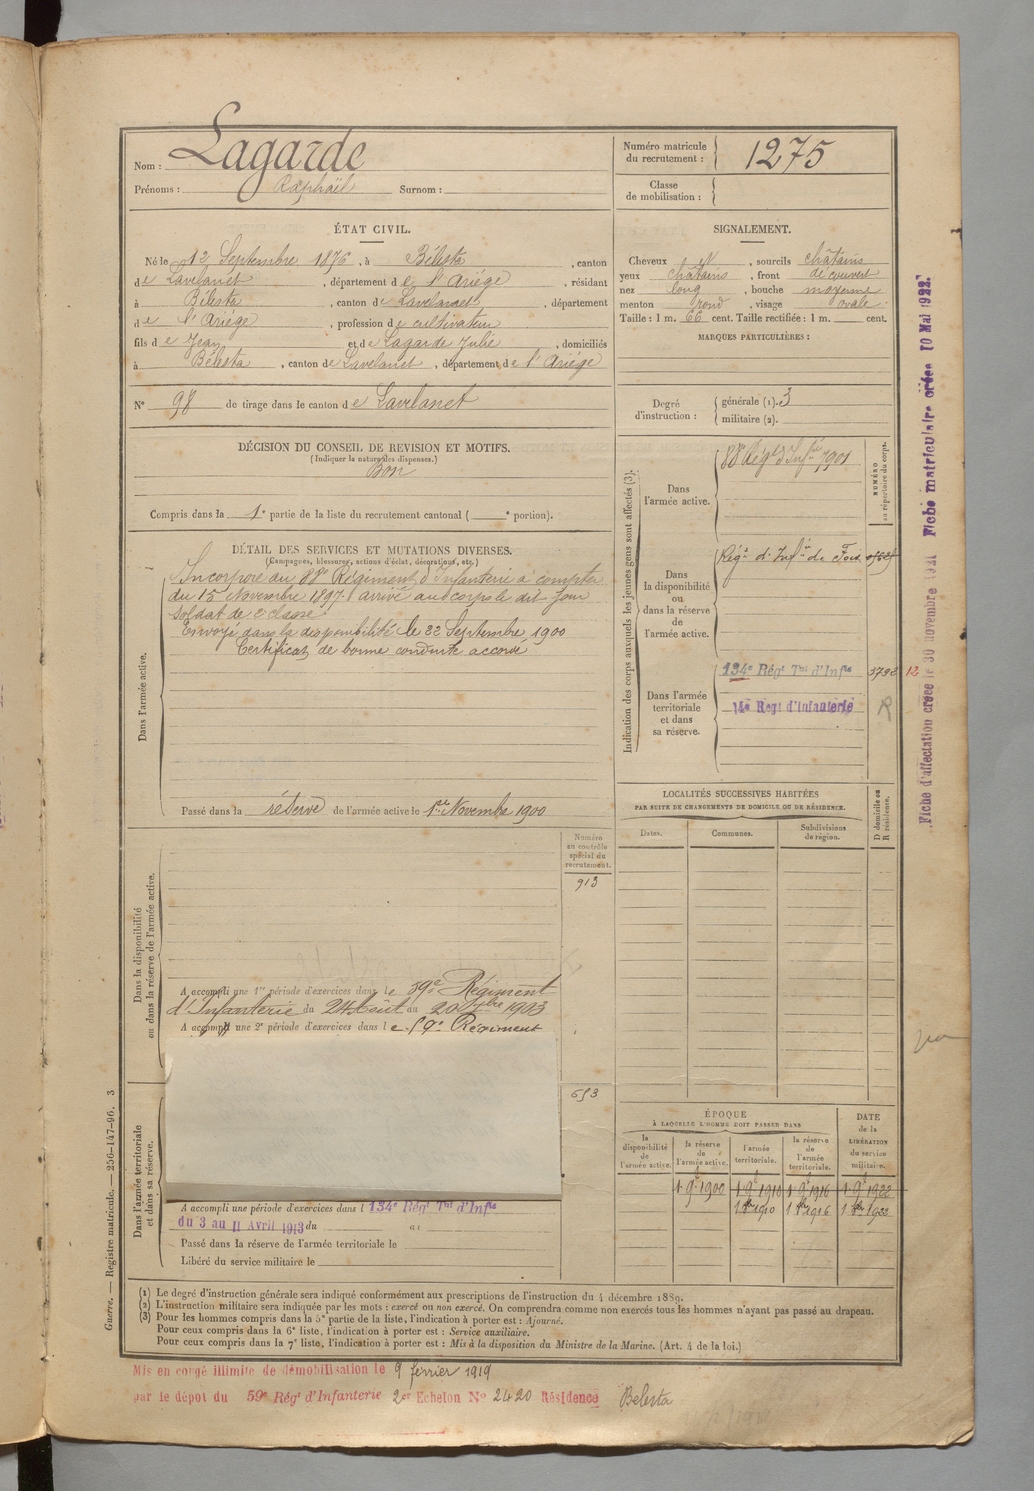 Nom : Lagarde
Prénoms : Raphaël Surnom :
Numéro matricule du recrutement : 1275
Classe de mobilisation :
ÉTAT CIVIL.
Né le 12 Septembre 1876, à Bélesta, canton
de Lavelanet, département de l'Ariége, résidant
à Bélesta, canton de Lavelanet, département
de l'Ariége, profession de cultivateur
fils de Jean et de Lagarde Julie, domiciliés
à Bélesta, canton de Lavelanet, département de l'Ariége
N° 98 de tirage dans le canton de Lavelanet
SIGNALEMENT.
Cheveux N, sourcils châtains
yeux châtains, front découvert
nez long, bouche moyenne
menton rond, visage ovale.
Taille : 1 m. 66 cent. Taille rectifiée : 1 m. cent.
MARQUES PARTICULIÈRES :
Degré d'instruction : générale (1). 3
militaire (2).
DÉCISION DU CONSEIL DE REVISION ET MOTIFS.
(Indiquer la nature des dispenses.)
Bon
Compris dans la 1e partie de la liste du recrutement cantonal ( e portion).
DÉTAIL DES SERVICES ET MUTATIONS DIVERSES.
(Campagnes, blessures, actions d'éclat, décorations, etc.)
Dans l'armée active.
Incorporé au 88e Régiment d'Infanterie à compter
du 15 Novembre 1897 arrivé au corps le dit jour
soldat de 2e classe
Envoyé dans la disponibilité le 22 Septembre 1900
Certificat de bonne conduite accordé
Passé dans la réserve de l'armée active le 1er Novembre 1900
Indication des corps auxquels les jeunes gens sont affectés (3).
NUMÉRO au répertoire du corps.
Dans l'armée active.
88e Régt d'Infrie 1901
Dans la disponibilité ou dans la réserve de l'armée active.
Régt d'Infie de Foix
Dans l'armée territoriale et dans sa réserve.
134e Régt Tal d'Infie 3798 12
14e Régt d'Infanterie R
LOCALITÉS SUCCESSIVES HABITÉES
PAR SUITE DE CHANGEMENTS DE DOMICILE OU DE RÉSIDENCE.
Dates. Communes. Subdivisions de région. D domicile ou R résidence.
Numéro au contrôle spécial du recrutement.
913
Dans la disponibilité ou dans la réserve de l'armée active.
A accompli une 1re période d'exercices dans le 59e Régiment
d'Infanterie du 24 Août au 20 7bre 1903
A accompli une 2e période d'exercices dans le 59e Régiment
653
Dans l'armée territoriale et dans sa réserve.
A accompli une période d'exercices dans l 134e Régt Tal d'Infie
du 3 au 11 Avril 1913 du au
Passé dans la réserve de l'armée territoriale le
Libéré du service militaire le
ÉPOQUE
À LAQUELLE L'HOMME DOIT PASSER DANS
la disponibilité de l'armée active. la réserve de l'armée active. l'armée territoriale. la réserve de l'armée territoriale.
DATE de la LIBÉRATION du service militaire.
1 9e 1900 1 9e 1910 1 9e 1916 1 9e 1922
1910 1916 1922
(1) Le degré d'instruction générale sera indiqué conformément aux prescriptions de l'instruction du 4 décembre 1889.
(2) L'instruction militaire sera indiquée par les mots : exercé ou non exercé. On comprendra comme non exercés tous les hommes n'ayant pas passé au drapeau.
(3) Pour les hommes compris dans la 5e partie de la liste, l'indication à porter est : Ajourné.
Pour ceux compris dans la 6e liste, l'indication à porter est : Service auxiliaire.
Pour ceux compris dans la 7e liste, l'indication à porter est : Mis à la disposition du Ministre de la Marine. (Art. 4 de la loi.)
Mis en congé illimité de démobilisation le 9 février 1919
par le dépôt du 59e Régt d'Infanterie 2e Echelon N° 2420 Résidence Bélesta
Guerre. — Registre matricule. — 256-147-96. 3
Fiche d'affectation créée le 30 novembre 1921 Fiche matriculaire créée 10 Mai 1922.